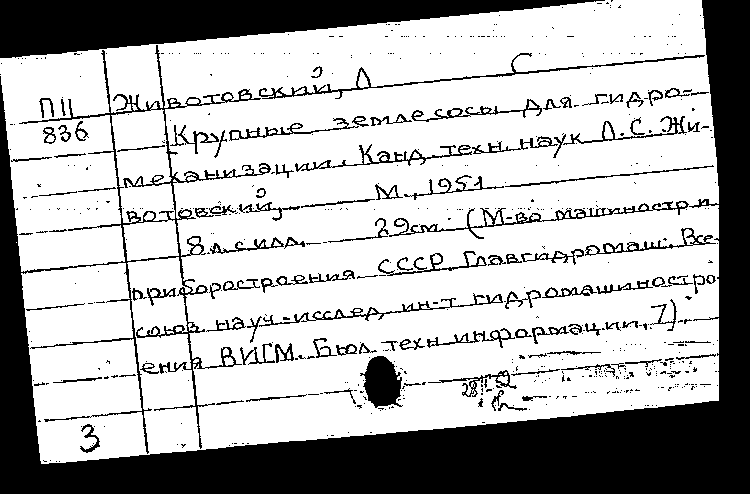 П11 Животовский, Л С
836 Крупные землесосы для гидро-
механизации. Канд. техн. наук Л.С. Жи-
вотовский, М., 1951
8 л. с илл. 29см. (М-во машиностр. и
приборостроения СССР. Главгидромаш. Все-
союз. науч.-исслед. ин-т гидромашиностро-
ения ВИГМ. Бюл. техн. информации, 7).
3